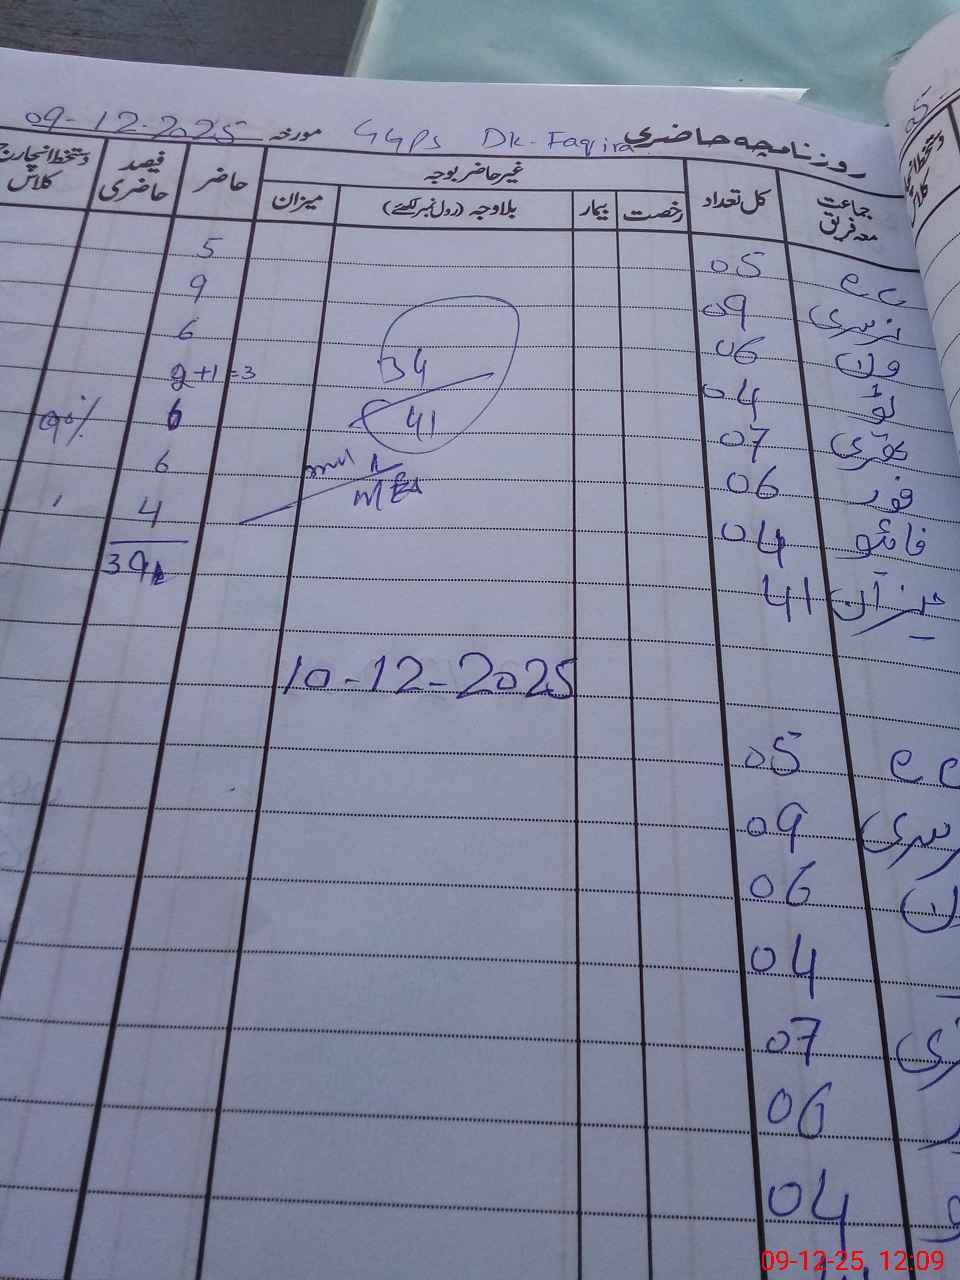 روزنامچہ حاضری GGPS Dk. Faqira مورخہ 09-12-2025
جماعت معہ فریق کل تعداد غیر حاضر بوجہ حاضر فیصد حاضری دستخط انچارج کلاس
رخصت بیمار بلاوجہ (رول نمبر لکھئے) میزان
ee 05 5
نرسری 09 9
ون 06 6
ٹو 04 2+1=3
تھری 07 6 90%
فور 06 6
فائیو 04 4
میزان 41 39
34
41
10-12-2025
ee 05
رسری 09
ن 06
04
ری 07
06
04
09-12-25, 12:09